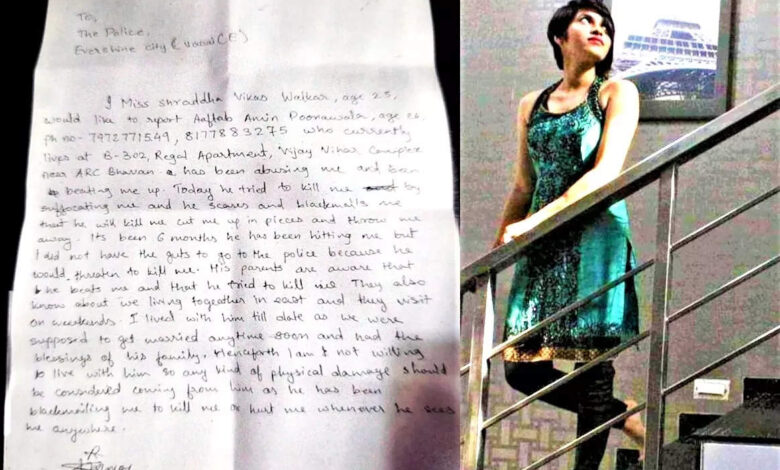 To,
The Police,
Evershine City (Vasai (E))
I Miss shraddha Vikas Walkar, age 25,
would like to report Aaftab Amin Poonawala, age 26
Ph no- 7972771549, 8177883275 who currently
lives at B-302, Regal Apartment, Vijay Vihar Complex
near ARC Bhavan. has been abusing me and been
beating me up. Today he tried to kill me by
suffocating me and he scares and blackmails me
that he will kill me cut me up in pieces and throw me
away. Its been 6 months he has been hitting me but
I did not have the guts to go to the police because he
would threaten to kill me. His parents are aware that
he beats me and that he tried to kill me They also
know about we living together in east and they visit
on weekends. I lived with him till date as we were
supposed to get married anytime soon and had the
blessings of his family. Henceforth I am not willing
to live with him so any kind of physical damage should
be considered coming from him as he has been
blackmailing me to kill me or hurt me whenever he sees
me anywhere.